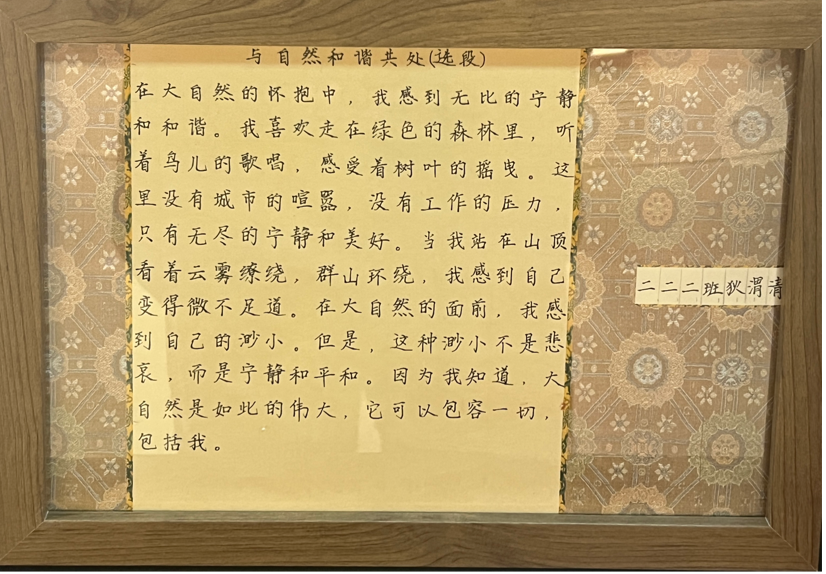 与自然和谐共处(选段)
在大自然的怀抱中，我感到无比的宁静
和和谐。我喜欢走在绿色的森林里，听
着鸟儿的歌唱，感受着树叶的摇曳。这
里没有城市的喧嚣，没有工作的压力，
只有无尽的宁静和美好。当我站在山顶
看着云雾缭绕，群山环绕，我感到自己
变得微不足道。在大自然的面前，我感
到自己的渺小。但是，这种渺小不是悲
哀，而是宁静和平和。因为我知道，大
自然是如此的伟大，它可以包容一切，
包括我。
二二二班狄渭清